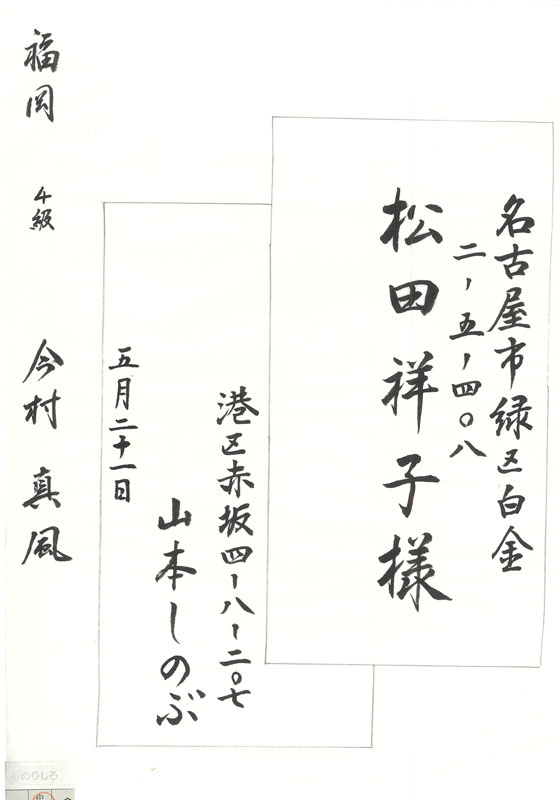 名古屋市緑区白金
二ー五ー四〇八
松田祥子様
港区赤坂四ー八ー二〇七
山本しのぶ
五月二十一日
福岡 4級 今村真風
のりしろ